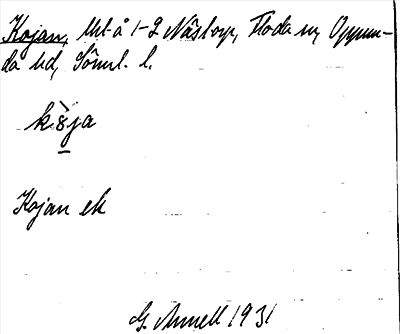 Kojan, Utl. å 1-2 Näsbyn, Floda sn, Oppun-
da hd, Söml. l.
kòja
Kojan ek
G. Annell 1931